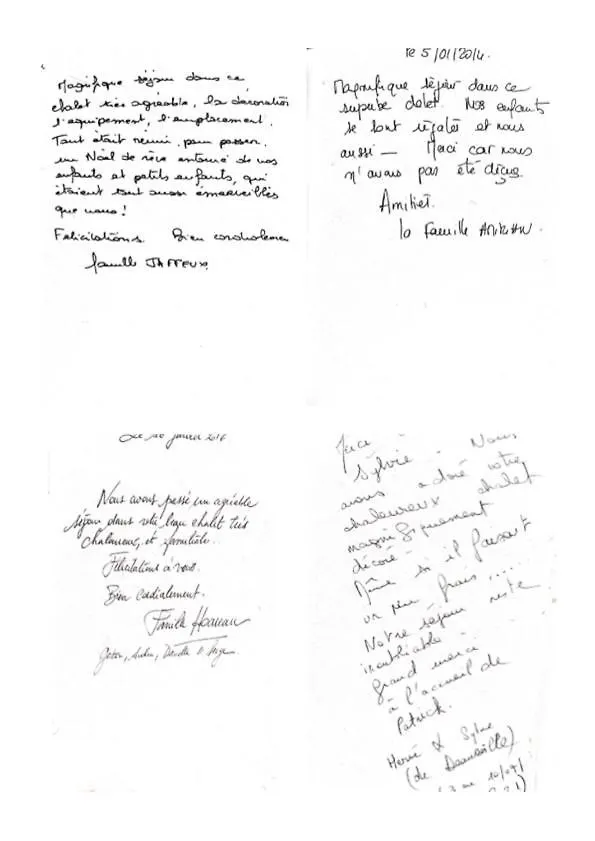 Magnifique séjour dans ce
chalet très agréable, la décoration
l'équipement, l'emplacement.
Tout était réuni, pour passer
un Noël de rêve entouré de nos
enfants et petits enfants, qui
étaient tout aussi émerveillés
que nous !
Félicitations. Bien cordialemen
famille JAFFEUX
le 5/01/2014.
Magnifique séjour dans ce
superbe chalet. Nos enfants
se sont régalés et nous
aussi — Merci car nous
n'avons pas été déçus.
Amitiés.
la famille
janvier 2016
Nous avons passé un agréable
séjour dans votre beau chalet très
chaleureux, et familiale.
Félicitations à vous.
Bien cordialement.
Famille
Merci
Sylvie. Nous
avons adoré votre
chaleureux chalet
magnifiquement
décoré.
Même si il faisait
un peu frais....
Notre séjour reste
inoubliable.
Grand merci
à l'accueil de
Patrick.
Hervé & Sylvie
(de Deauville)